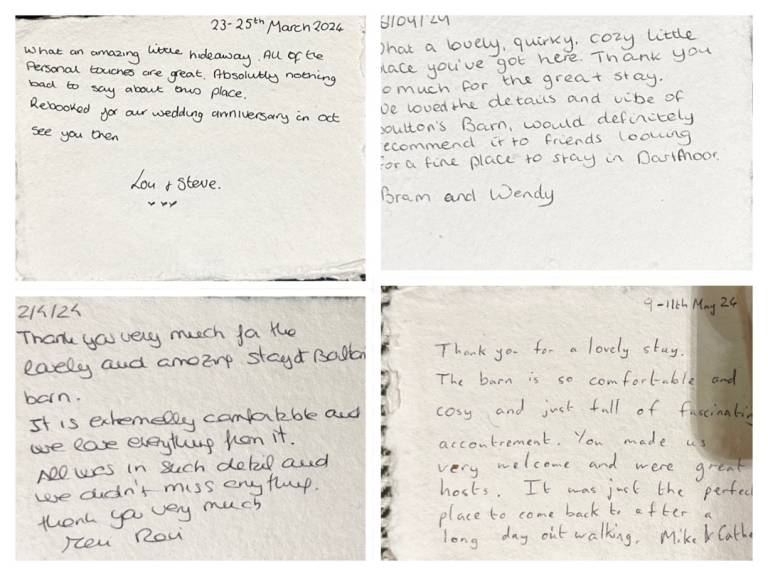 23-25th March 2024
What an amazing little hideaway. All of the
Personal touches are great. Absolutly nothing
bad to say about this place.
Rebooked for our wedding anniversary in oct
see you then
Lou + Steve.
xxx
/04/24
hat a lovely, quirky, cozy little
lace you've got here. Thank you
o much for the great stay.
e loved the details and vibe of
oulton's Barn, would definitely
ecommend it to friends looking
or a fine place to stay in Dartmoor.
Bram and Wendy
2/4/24
Thank you very much for the
lovely and amazing stay at
barn.
It is extemelly comfortable and
we love everything from it.
All was in such detail and
we didn't miss anything.
thank you very much
9-11th May 24
Thank you for a lovely stay.
The barn is so comfortable and
cosy and just full of fascinatin
accoutrement. You made us
very welcome and were great
hosts. It was just the perfec
place to come back to after a
long day out walking. Mike & Cathe